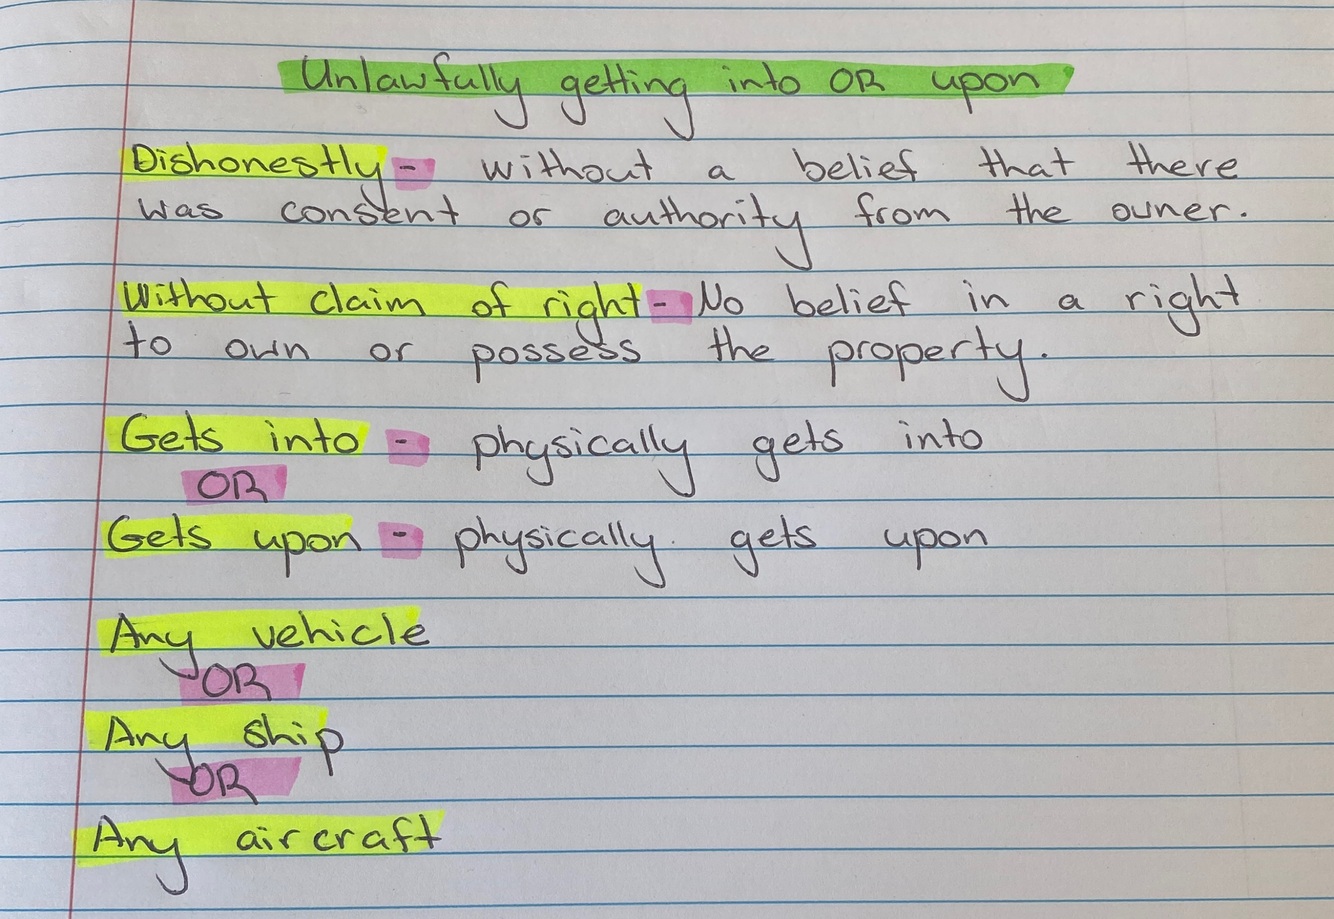 Unlawfully getting into OR upon
Dishonestly - without a belief that there
was consent or authority from the owner.
Without claim of right - No belief in a right
to own or possess the property.
Gets into - physically gets into
OR
Gets upon - physically gets upon
Any vehicle
OR
Any ship
OR
Any aircraft